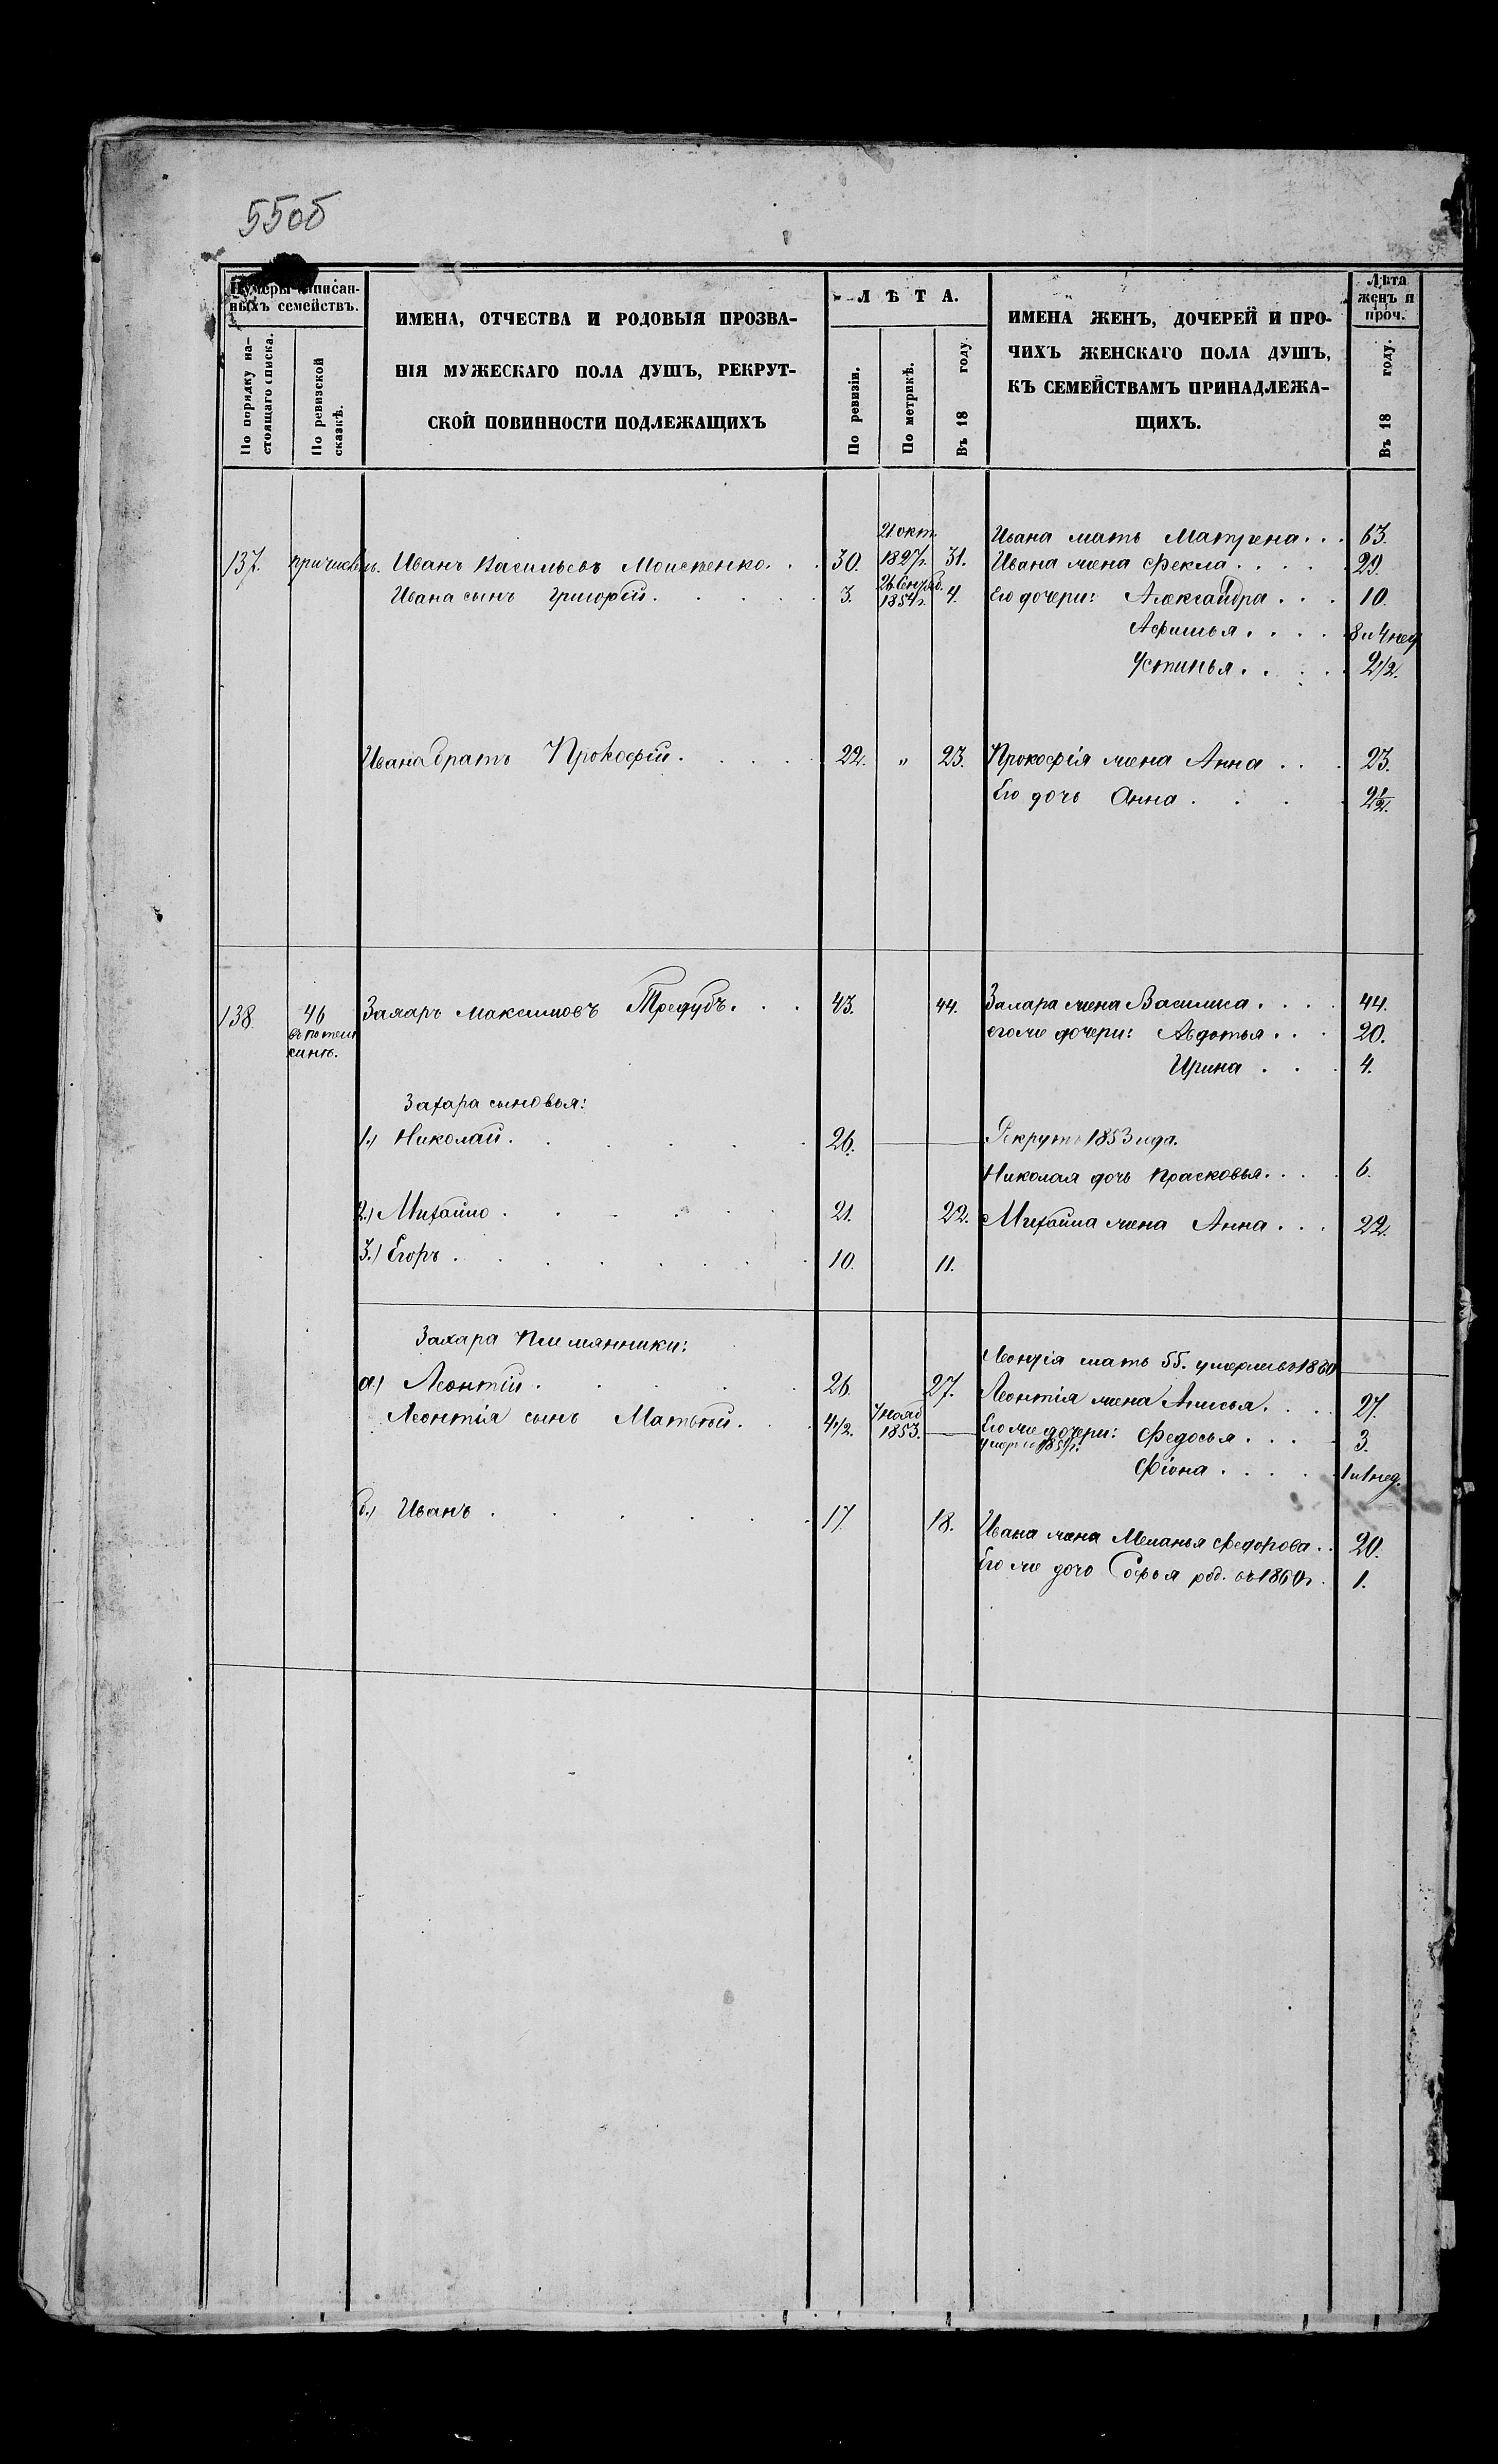 550б
Нумеры записан-
ныхъ семействъ.
По порядку на-
стоящаго списка.
По ревизской
сказкѣ.
ИМЕНА, ОТЧЕСТВА И РОДОВЫЯ ПРОЗВА-
НІЯ МУЖЕСКАГО ПОЛА ДУШЪ, РЕКРУТ-
СКОЙ ПОВИННОСТИ ПОДЛЕЖАЩИХЪ
ЛѢТА.
По ревизіи.
По метрикѣ.
Въ 18 году.
ИМЕНА ЖЕНЪ, ДОЧЕРЕЙ И ПРО-
ЧИХЪ ЖЕНСКАГО ПОЛА ДУШЪ,
КЪ СЕМЕЙСТВАМЪ ПРИНАДЛЕЖА-
ЩИХЪ.
Лѣта
женъ и
проч.
Въ 18 году.
Ивана мать Матрена . . . 63.
137. причислен. Иванъ Васильевъ Моисеенко. . . 30. 21 окт. 1827г. 31. Ивана жена Фекла . . . . . 29.
Ивана сынъ Григорій . . . . . 3. 26 Сентяб. 1854г. 4. Его дочери: Александра . . . 10.
Афимья . . . . 8 и 4 нед
Устинья . . . . . 2 1/2.
Ивана братъ Прокофій . . . . 22. " 23. Прокофія жена Анна . . . 23.
Его дочь Анна . . . . 2 1/2.
138. 46 Захаръ Максимовъ Трегубъ. . . 43. 44. Захара жена Василиса . . . . 44.
его же дочери: Авдотья . . . 20.
Ирина . . . 4.
Захара сыновья:
1.) Николай . . . . . . 26. Рекрутъ 1853 года.
Николая дочь Прасковья. . . . 6.
2.) Михайло . . . . . . 21. 22. Михайла жена Анна . . . 22.
3.) Егоръ . . . . . . . . 10. 11.
Захара Племянники:
Леонтія мать 55. умерла въ 1860
а.) Леонтій . . . . . 26. 27. Леонтія жена Анисья. . . . 27.
Леонтія сынъ Матвей. . . 4 1/2. 7 нояб 1853. Его же дочери: Федосья . . . . 3.
умеръ 1859г.
Фіона . . . . . 1 и 1 нед.
б.) Иванъ . . . . . . 17. 18. Ивана жена Меланья Федорова . . 20.
Его же дочь Софья род. въ 1860г. 1.